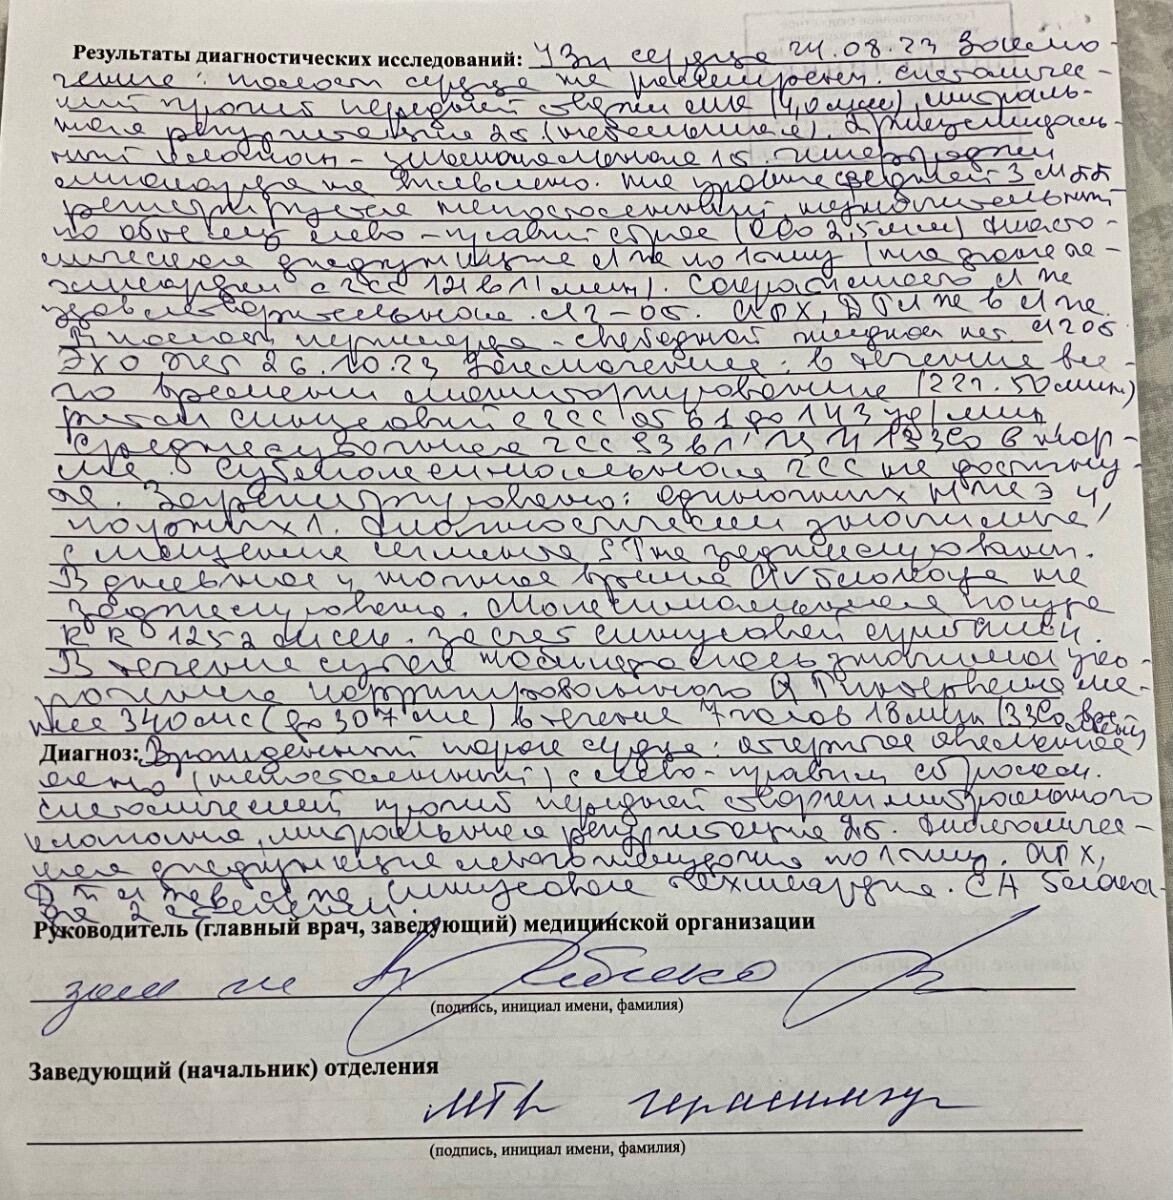 Результаты диагностических исследований: УЗИ сердца 24.08.23 Заклю-
чение: полости сердца не расширены. Систоличес-
кий пролапс передней створки МК (4,0 мм), митраль-
ная регургитация 2 ст (небольшая). Трикуспидаль-
ный клапан - 1 ст. Гипертрофии
миокарда не выявлено. На уровне средней 3 МПП
регистрируется непостоянный незначительный
по объему лево-правый сброс (ООО 2,5 мм) Диасто-
лическая дисфункция ЛЖ по 1 типу (на фоне та-
хикардии с ЧСС 121 в 1 мин). Сократимость ЛЖ
удовлетворительная. АРХ, ДТЛЖ в ЛЖ.
В полости перикарда - свободной жидкости нет.
ЭКГ 26.10.23 Заключение: в течение все-
го времени мониторирования (22ч. 50мин)
ритм синусовый с ЧСС от 61 до 143 уд/мин.
Среднесуточная ЧСС 93 в 1'. ЦИ 133% в нор-
ме. Субмаксимальная ЧСС не достигну-
та. Зарегистрировано: одиночных НЖЭ 4
парных 1. Диагностически значимые
смещения сегмента ST не зафиксированы.
В дневное и ночное время AV блокада не
зафиксирована. Максимальная пауза
RR 1252 мсек. за счет синусовой аритмии.
В течение суток наблюдалось значимое уко-
рочение корригированного QT интервала ме-
нее 340 мс (до 307 мс) в течение 7 часов 18 мин (33% времени)
Диагноз: Врожденный порок сердца: открытое овальное
окно (непостоянный) с лево-правым сбросом.
Систолический пролапс передней створки митрального
клапана, митральная регургитация 2 ст. Диастоличес-
кая дисфункция левого желудочка по 1 типу. АРХ,
ДТЛЖ. Синусовая тахикардия. СА блока-
да 2 степени.
Руководитель (главный врач, заведующий) медицинской организации
зам
(подпись, инициал имени, фамилия)
Заведующий (начальник) отделения
(подпись, инициал имени, фамилия)